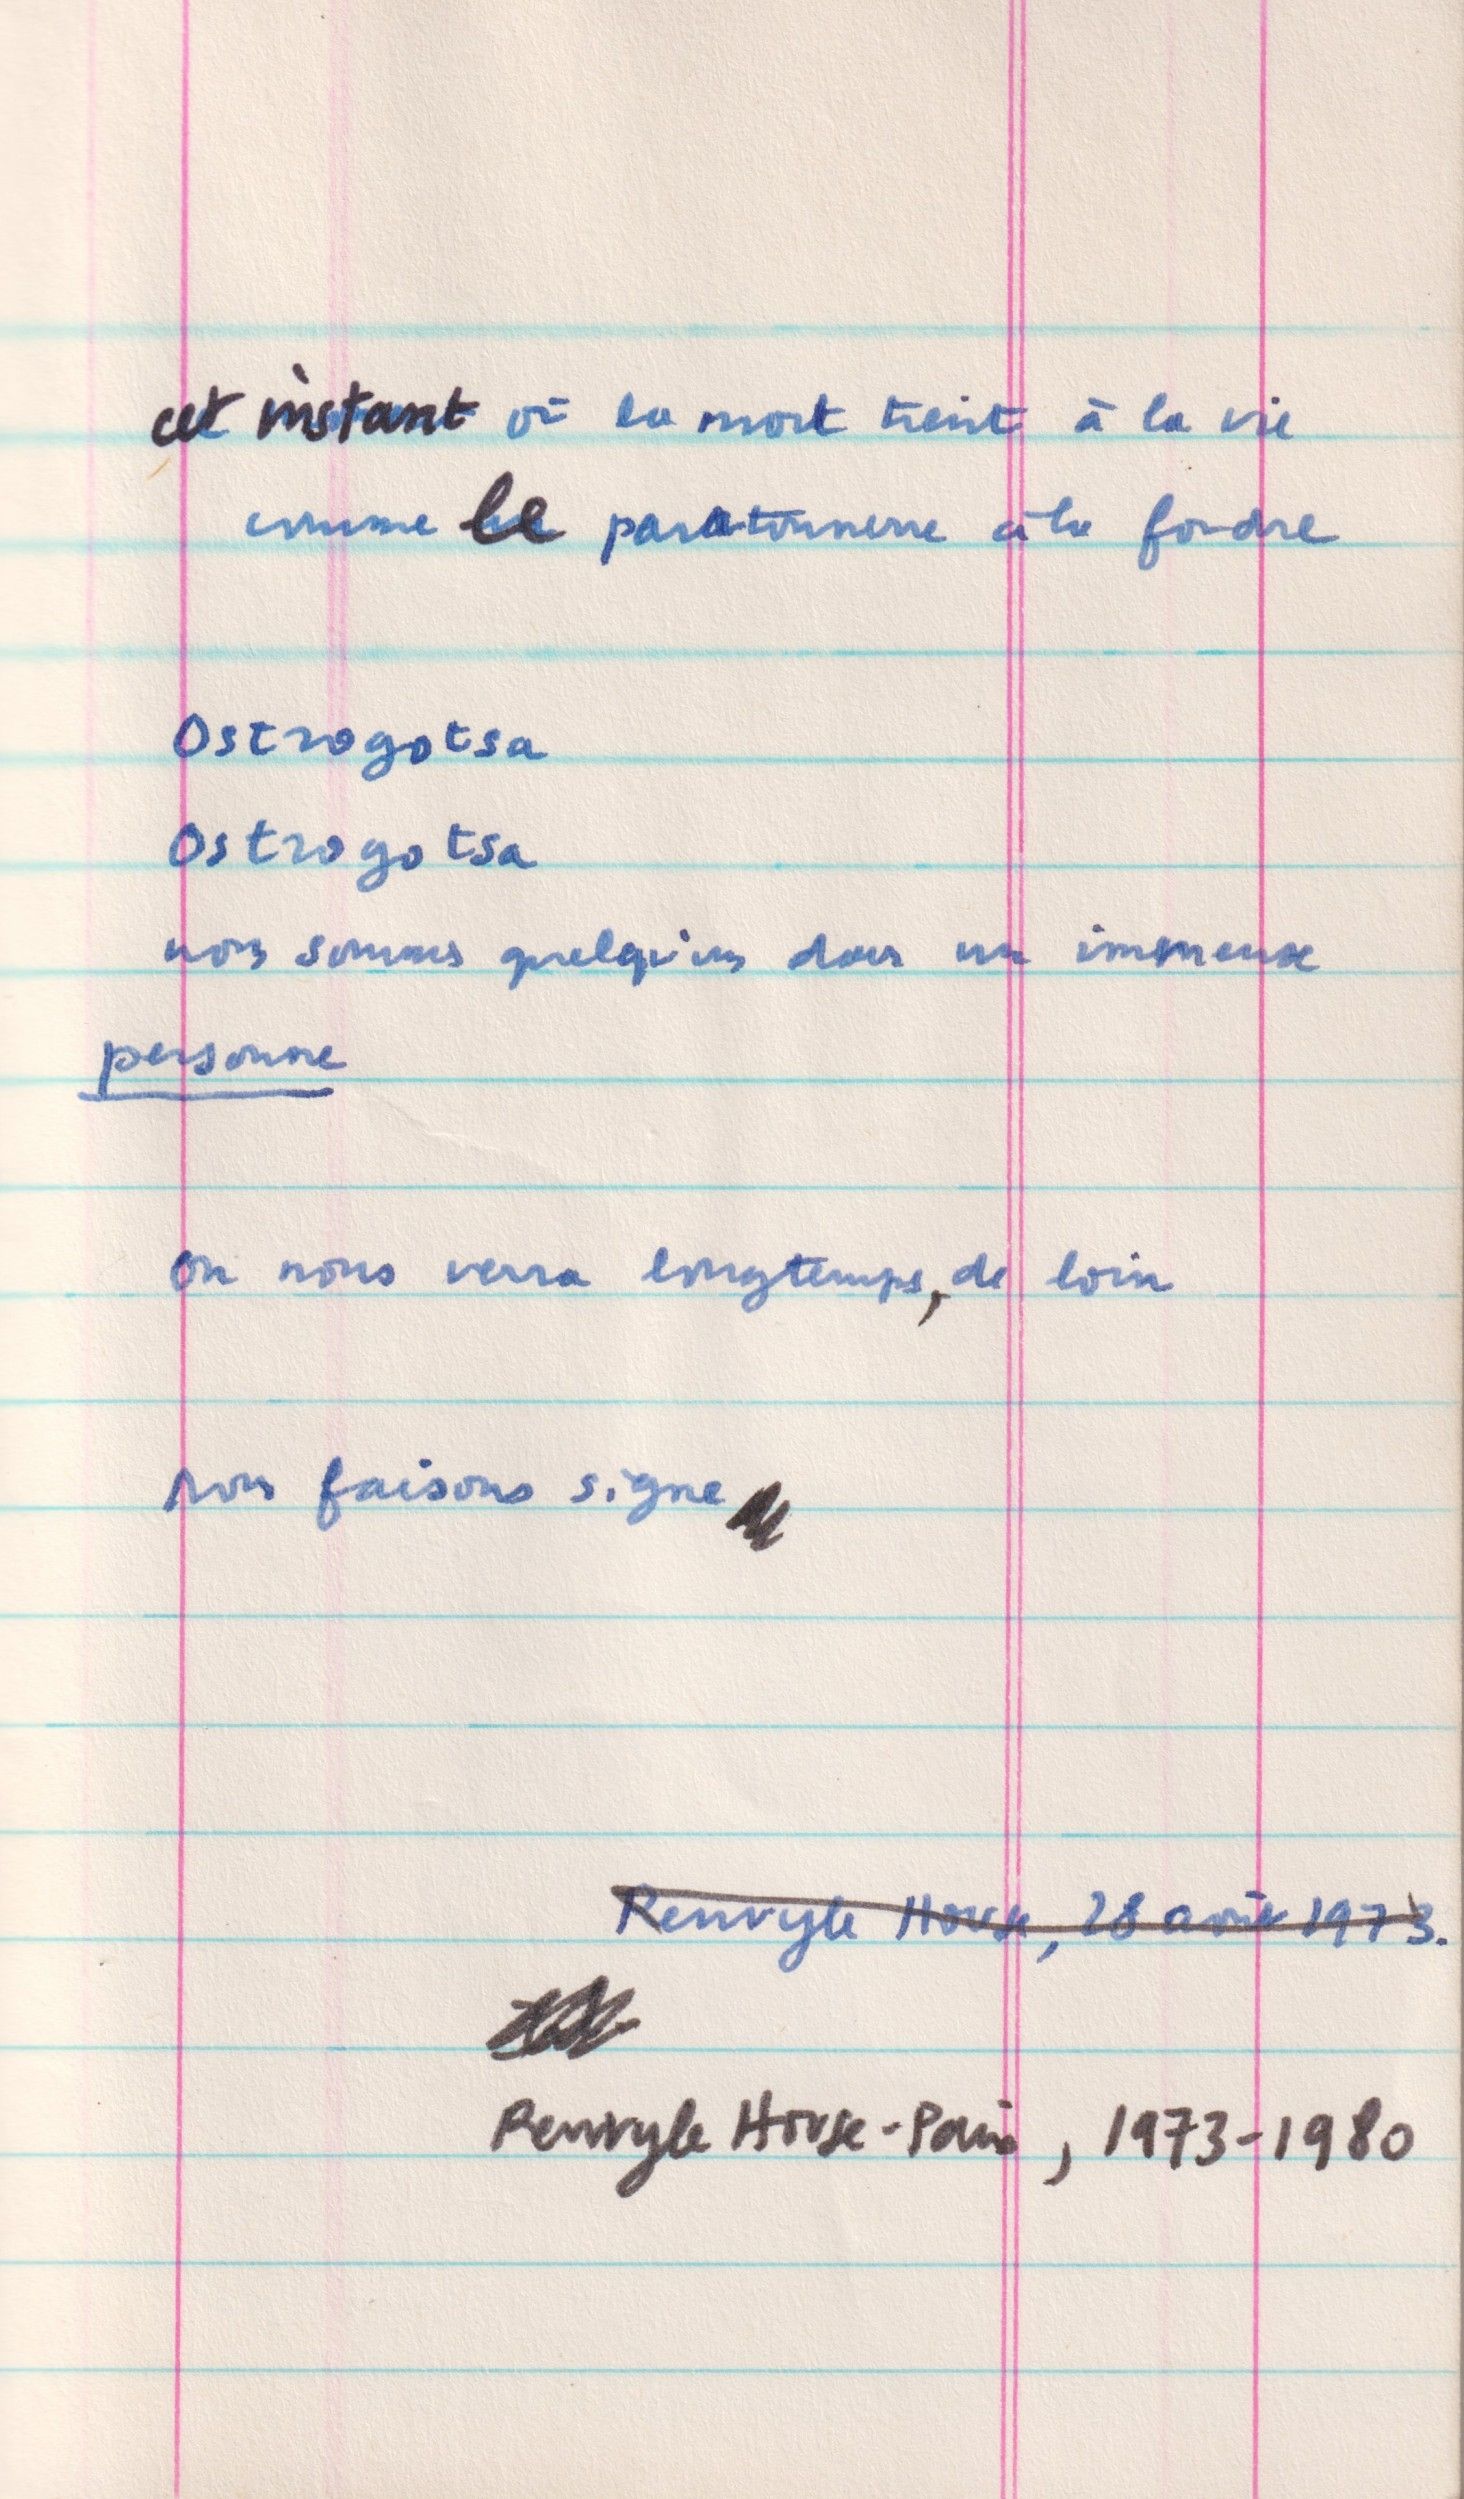 cet instant où la mort tient à la vie
comme le paratonnerre à la foudre
Ostrogotsa
Ostrogotsa
nous sommes quelqu'un dans un immense
personne
on nous verra longtemps, de loin
nous faisons signe
Renvyle House, 28 avril 1973.
Renvyle House-Paris, 1973-1980